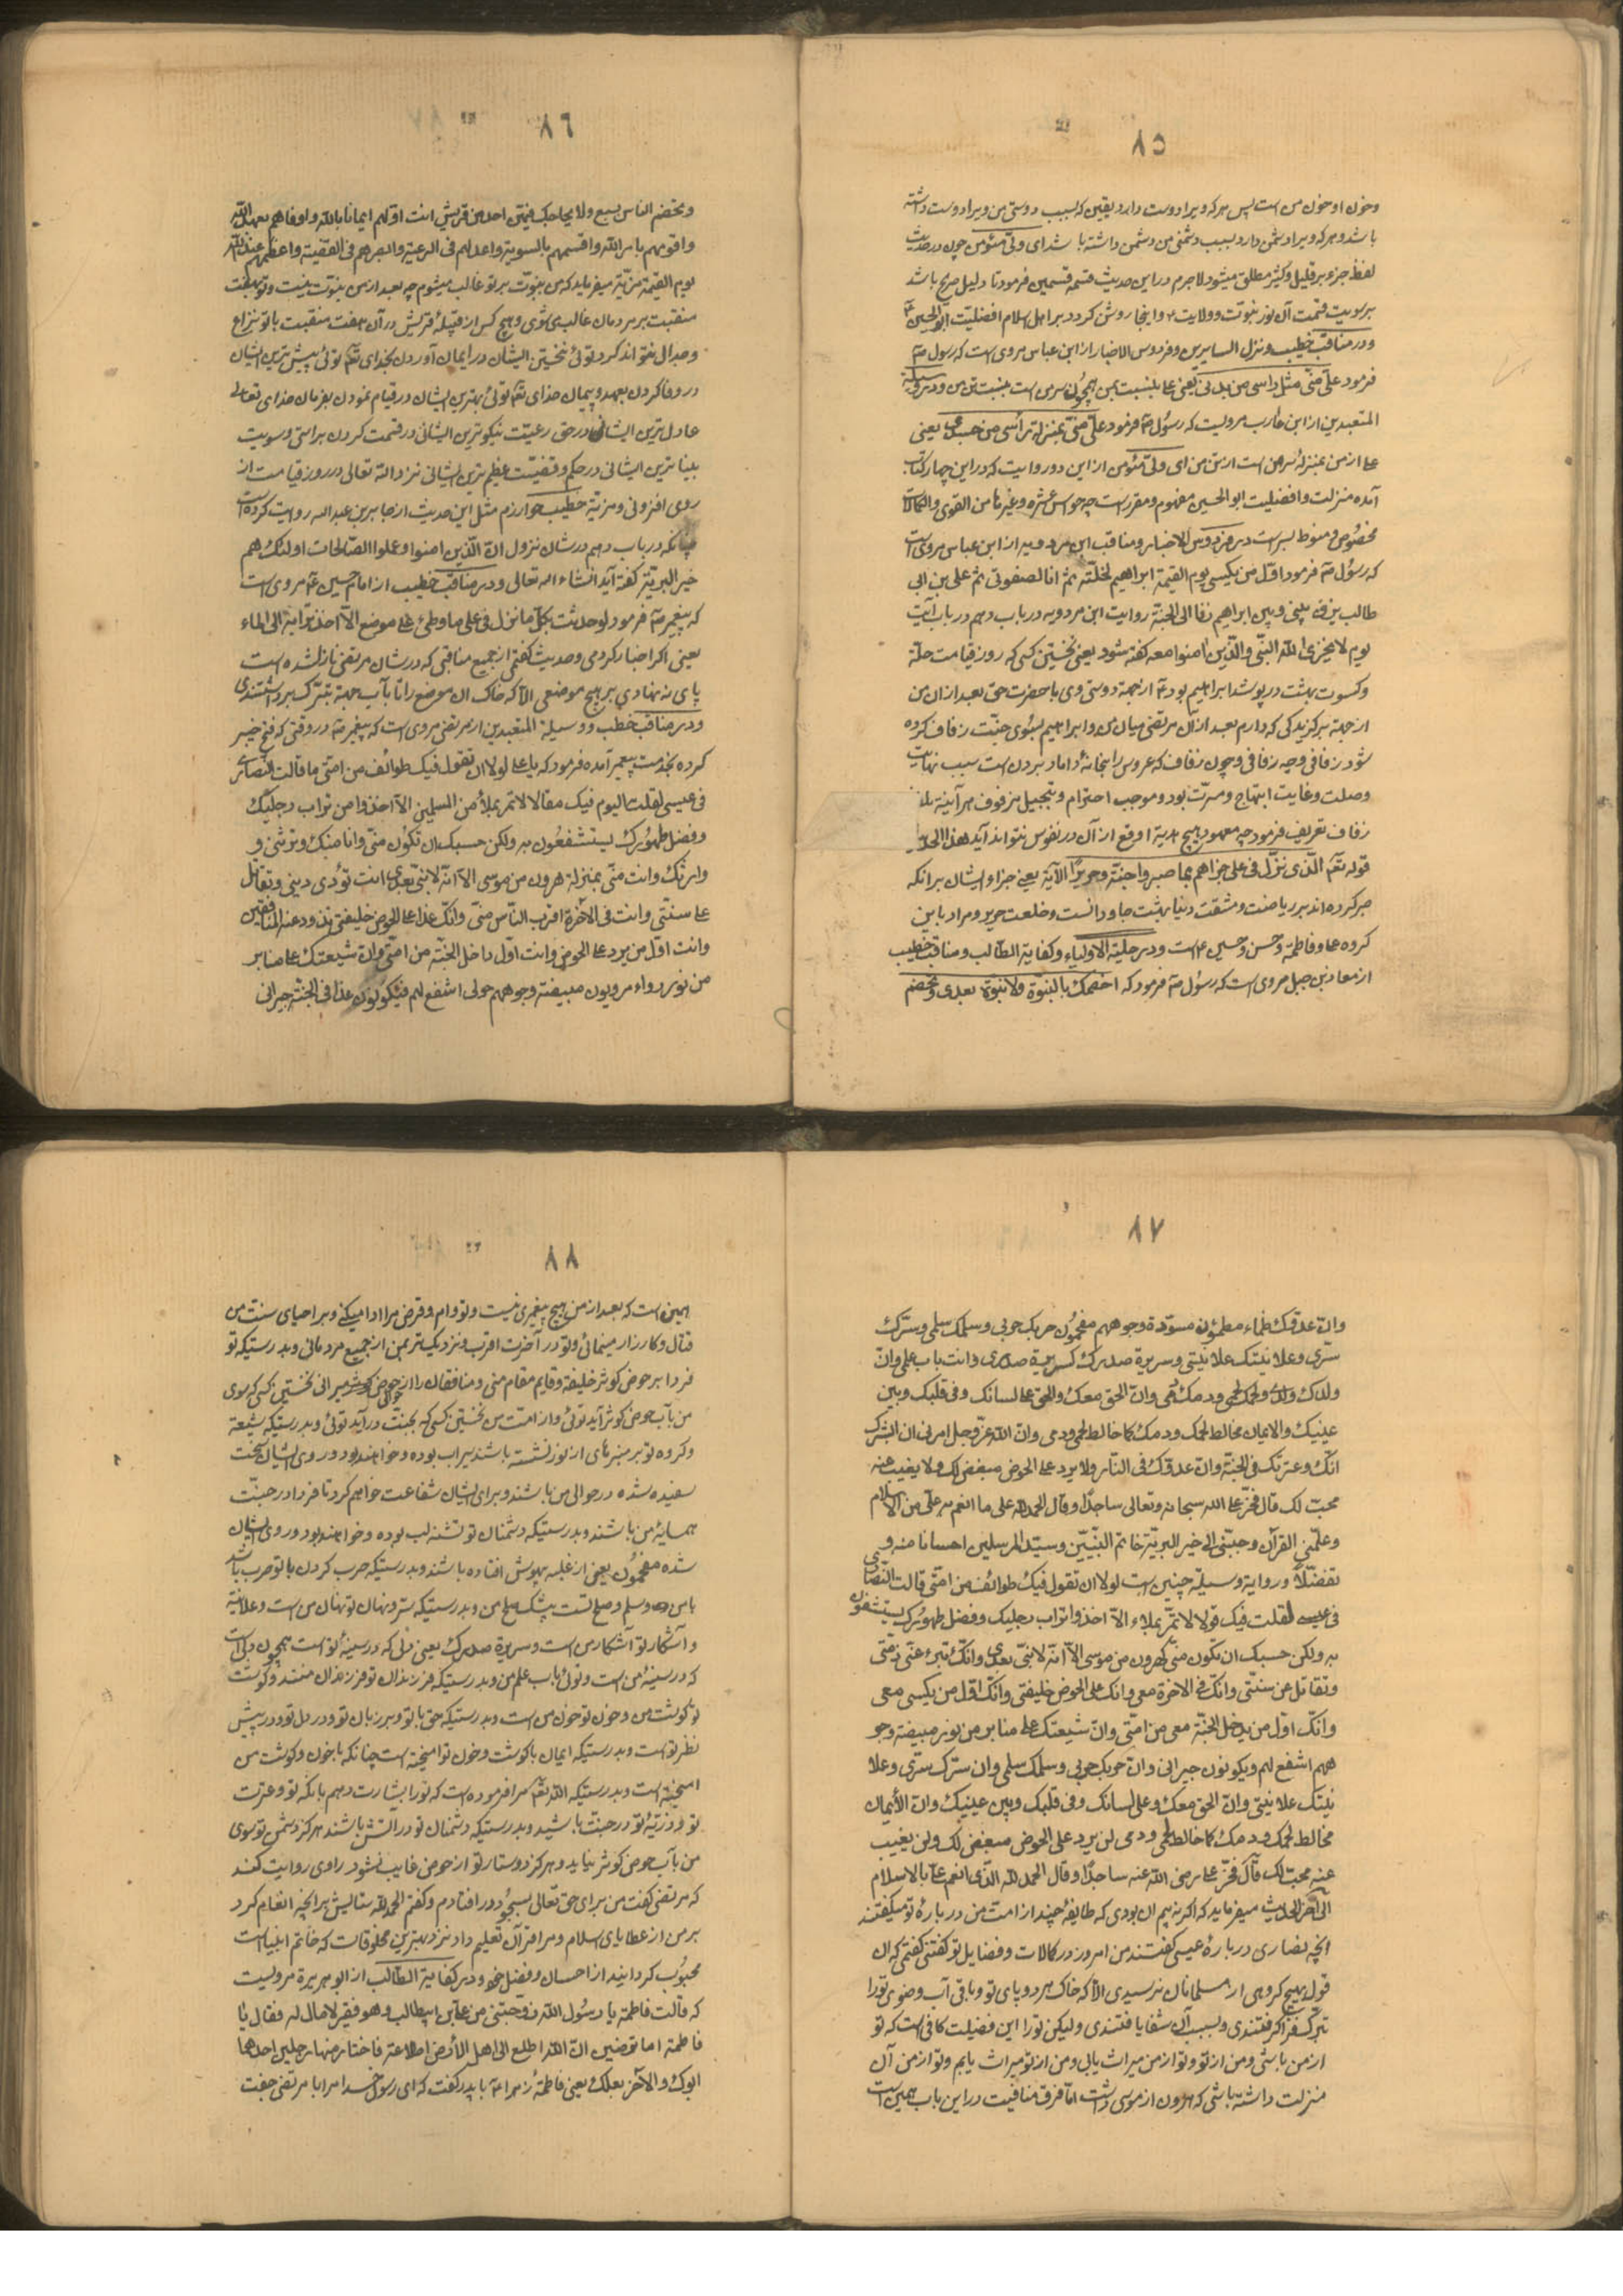 ٨٥
وخون او خون من است پس هر که ویرا دوست دارد یقین که بسبب دوستی من ویرا دوست داشته
باشد و هر که ویرا دشمن دارد بسبب دشمنی من دشمن داشته باشد ای ولی مؤمن چون در حدیث
لفظ جزء بر قلیل و کثیر مطلق میشود لاجرم در این حدیث قسمه قسمین فرمود تا دلیل صریح باشد
بر سویت قسمت آن نور نبوت و ولایت و اینجا روشن کردد بر اهل اسلام افضلیت ابو الحسین ع
و در مناقب خطیب و نزل السایرین و فردوس الاخبار از ابن عباس مروی است که رسول صم
فرمود علی منی مثل راسی من بدنی یعنی علی بنسبت بمن همچون سر من است بنسبت تن من و در وسیلة
المتعبدین از ابن عازب مرویست که رسول صم فرمود علی منی بمنزلة رأسی من جسدی یعنی
علی از من بمنزله سر من است از تن من ای ولی مؤمن از این دو روایت که در این چهار کتاب
آمده منزلت و افضلیت ابو الحسین مفهوم و مقرر است چه حواس عشره و غیرها من القوی والکمالات
مخصوص و منوط بسر است در فردوس الاخبار و مناقب ابن مردویه از ابن عباس مروی است
که رسول صم فرمود اول من یکسی یوم القیمة ابراهیم لخلته ثم انا لصفوتی ثم علی بن ابی
طالب یزف بینی و بین ابراهیم زفا الی الجنة روایت ابن مردویه در باب دهم در باب آیت
یوم لا یخزی الله النبی والذین امنوا معه کفته شود یعنی نخستین کسی که روز قیامت حله
و کسوت بهشت در پوشد ابراهیم بود ع از جهة دوستی وی با حضرت حق بعد از ان من
از جهة برکزیدکی که دارم بعد از ان مرتضی میان من و ابراهیم بسوی جنت زفاف کرده
شود زفافی وجیه زفافی و چون زفاف که عروس را بخانۀ داماد بردن است سبب نهایت
وصلت و غایت ابتهاج و مسرت بود و موجب احترام و تبجیل مزفوف هر آینه
زفاف تعریف فرمود چه معهود هیچ اوقع از آن در نفوس نتواند آید هذا الحد
قوله تعم الذی نزل فی علی جزاهم بما صبروا جنة وحریرا الآیة یعنی جزاء ایشان برانکه
صبر کرده اند بر ریاضت و مشقت دنیا بهشت جاودانست و خلعت حریر و مراد باین
کروه علی و فاطمه و حسن و حسین ع است و در حلیة الاولیاء و کفایة الطالب و مناقب خطیب
از معاذ بن جبل مروی است که رسول صم فرمود که اخصمک بالنبوة ولا نبوة بعدی و تخصم
٨٦
وتخصم الناس بسبع ولا یحاجک فیهن احد من قریش انت اولهم ایمانا بالله واوفاهم بعهد الله
واقومهم بامر الله واقسمهم بالسویة واعدلهم فی الرعیة وابصرهم فی القضیة واعظمهم عند الله
یوم القیمة مزیة میفرماید که من بنبوت بر تو غالب میشوم چه بعد از من نبوت نیست و تو بهفت
منقبت بر مردمان غالب می شوی و هیچ کس از قبیلۀ قریش در آن هفت منقبت با تو نزاع
و جدال نتواند کرد توئی نخستین ایشان در ایمان آوردن بخدای تعم توئی پیش ترین ایشان
در وفا کردن بعهد و پیمان خدای تعم توئی بهترین ایشان در قیام نمودن بفرمان خدای تعالی
عادل ترین ایشانی در حق رعیت نیکوترین ایشانی در قسمت کردن براستی و سویت
بیناترین ایشانی در حکم و قضیت عظیم ترین ایشانی نزد الله تعالی در روز قیامت از
روی افزونی و مزیة خطیب خوارزم مثل این حدیث از جابر بن عبد الله روایت کرده است
چنانکه در باب دهم در شان نزول ان الذین امنوا وعملوا الصالحات اولئک هم
خیر البریة کفته آید انشاء الله تعالی و در مناقب خطیب از امام حسین ع مروی است
که پیغمبر صم فرمود لو حدثت بکل ما نزل فی علی ما وطئ علی موضع الا اخذ ترابه الی الماء
یعنی اکر اخبار کردمی و حدیث کفتمی از جمیع مناقبی که در شان مرتضی نازل شده است
پای ننهادی بر هیچ موضعی الا که خاک ان موضع را تا بآب بجهة تبرک برداشتندی
و در مناقب خطیب و وسیلة المتعبدین از مرتضی مروی است که پیغمبر صم در وقتی که فتح خیبر
کرده بخدمت پیغمبر آمده فرمود که یا علی لولا ان تقول فیک طوائف من امتی ما قالت النصاری
فی عیسی لقلت الیوم فیک مقالا لا تمر بملأ من المسلمین الا اخذوا من تراب رجلیک
وفضل طهورک لیستشفعون به ولکن حسبک ان تکون منی وانا منک وترثنی و
وارثک وانت منی بمنزلة هرون من موسی الا انه لا نبی بعدی انت تؤدی دینی وتقاتل
علی سنتی وانت فی الآخرة اقرب الناس منی وانک غدا علی الحوض خلیفتی تذود عنه المنافقین
وانت اول من یرد علی الحوض وانت اول داخل الجنة من امتی وان شیعتک علی منابر
من نور رواء مرویون مبیضة وجوههم حولی اشفع لهم فیکونون غدا فی الجنة جیرانی
٨٧
وان عدوک ظماء مظمئون مسودة وجوههم مفحمون حربک حربی وسلمک سلمی وسرک
سری وعلانیتک علانیتی وسریرة صدرک کسریرة صدری وانت باب علمی وان
ولدک ولدی ولحمک لحمی ودمک دمی وان الحق معک والحق علی لسانک وفی قلبک وبین
عینیک والایمان مخالط لحمک ودمک کما خالط لحمی ودمی وان الله عز وجل امرنی ان ابشرک
انک وعترتک فی الجنة وان عدوک فی النار ولا یرد علی الحوض مبغض لک ولا یغیب عنه
محب لک قال فخر علی الله سبحانه وتعالی ساجدا وقال الحمد لله علی ما انعم به علی من الاسلام
وعلمنی القرآن وحببنی الی خیر البریة خاتم النبیین وسید المرسلین احسانا منه و
تفضلا و روایة وسیله چنین است لولا ان تقول فیک طوائف من امتی قالت النصاری
فی عیسی لقلت فیک قولا لا تمر بملاء الا اخذوا تراب رجلیک وفضل طهورک یستشفون
به ولکن حسبک ان تکون منی کهرون من موسی الا انه لا نبی بعدی وانک تبرئ عنی ذمتی
وتقاتل عن سنتی وانک فی الاخرة معی وانک علی الحوض خلیفتی وانک اول من یکسی معی
وانک اول من یدخل الجنة معی من امتی وان شیعتک علی منابر من نور مبیضة وجو
ههم اشفع لهم ویکونون جیرانی وان حربک حربی وسلمک سلمی وان سرک سری وعلا
نیتک علانیتی وان الحق معک وعلی لسانک وفی قلبک وبین عینیک وان الأیمان
مخالط لحمک ودمک کما خالط لحمی ودمی لن یرد علی الحوض مبغض لک ولن یغیب
عنه محب لک قال فخر علی رضی الله عنه ساجدا وقال الحمد لله الذی انعم علی بالاسلام
الی آخر الحدیث میفرماید که اکر نه بیم ان بودی که طایفۀ چند از امت من در بارۀ تو میکفتند
انچه نصاری در بارۀ عیسی کفتند من امروز در کمالات و فضایل تو کفتنی کفتمی که ان
قول بهیچ کروهی از مسلمانان نرسیدی الا که خاک هر دو پای تو و باقی آب وضوی تو را
تبرک فرا کرفتندی و بسبب آن شفا یافتندی ولیکن تو را این فضیلت کافی است که تو
از من باشی و من از تو و تو از من میراث یابی و من از تو میراث یابم و تو از من آن
منزلت داشته باشی که هرون از موسی داشت اما فرق منافیت در این باب همین است
٨٨
همین است که بعد از من هیچ پیغمبری نیست و تو وام و قرض مرا ادا میکنی و بر احیای سنت من
قتال و کارزار مینمائی و تو در آخرت اقرب و نزدیکتر بمن از جمیع مردمانی و بدرستیکه تو
فردا بر حوض کوثر خلیفه و قایم مقام منی و منافقان را از حوالی حوض کوثر میرانی نخستین کسی که سوی
من بآب حوض کوثر آید توئی و از امت من نخستین کسی که بجنت درآید توئی و بدرستیکه شیعة
و کروه تو بر منبرهای از نور نشسته باشند سیراب بوده و خواهند بود و روی ایشان سخت
سفید شده در حوالی من باشند و برای ایشان شفاعت خواهم کرد تا فردا در جنت
همسایۀ من باشند و بدرستیکه دشمنان تو تشنه لب بوده و خواهند بود و روی ایشان سیاه
شده مفحمون یعنی از غلبه بیهوش افتاده باشند و بدرستیکه حرب کردن با تو حرب باشد
با من و سلم و صلح تست بیشک صلح من و بدرستیکه سر و نهان تو نهان من است و علانیة
و آشکار تو آشکار من است و سریرة صدرک یعنی دلی که در سینۀ تو است همچون دلی است
که در سینۀ من است و توئی باب علم من و بدرستیکه فرزندان تو فرزندان منند و کوشت
تو کوشت من و خون تو خون من است و بدرستیکه حق با تو و بر زبان تو و در دل تو و در پیش
نظر تو است و بدرستیکه ایمان با کوشت و خون تو آمیخته است چنانکه با خون و کوشت من
امیخته است و بدرستیکه الله تعم مرا فرموده است که تو را بشارت دهم بانکه تو و عترت
تو و ذریة تو در جنت باشید و بدرستیکه دشمنان تو در آتش باشند هرکز دشمن تو سوی
من بآب حوض کوثر نیاید و هرکز دوستار تو از حوض غایب نشود راوی روایت کند
که مرتضی کفت من برای حق تعالی بسجود در افتادم و کفتم الحمد لله ستایش بر انچه انعام کرد
بر من از عطایای اسلام و مرا قرآن تعلیم داد و نزد بهترین مخلوقات که خاتم انبیاست
محبوب کردانید از احسان و فضل خود و در کفایة الطالب از ابو هریرة مرویست
که قالت فاطمة یا رسول الله زوجتنی من علی بن ابیطالب وهو فقیر لا مال له فقال یا
فاطمة اما ترضین ان الله اطلع الی اهل الأرض اطلاعة فاختار منها رجلین احدهما
ابوک والآخر بعلک یعنی فاطمۀ زهرا ع با پدر کفت که ای رسول خدا مرا با مرتضی جفت